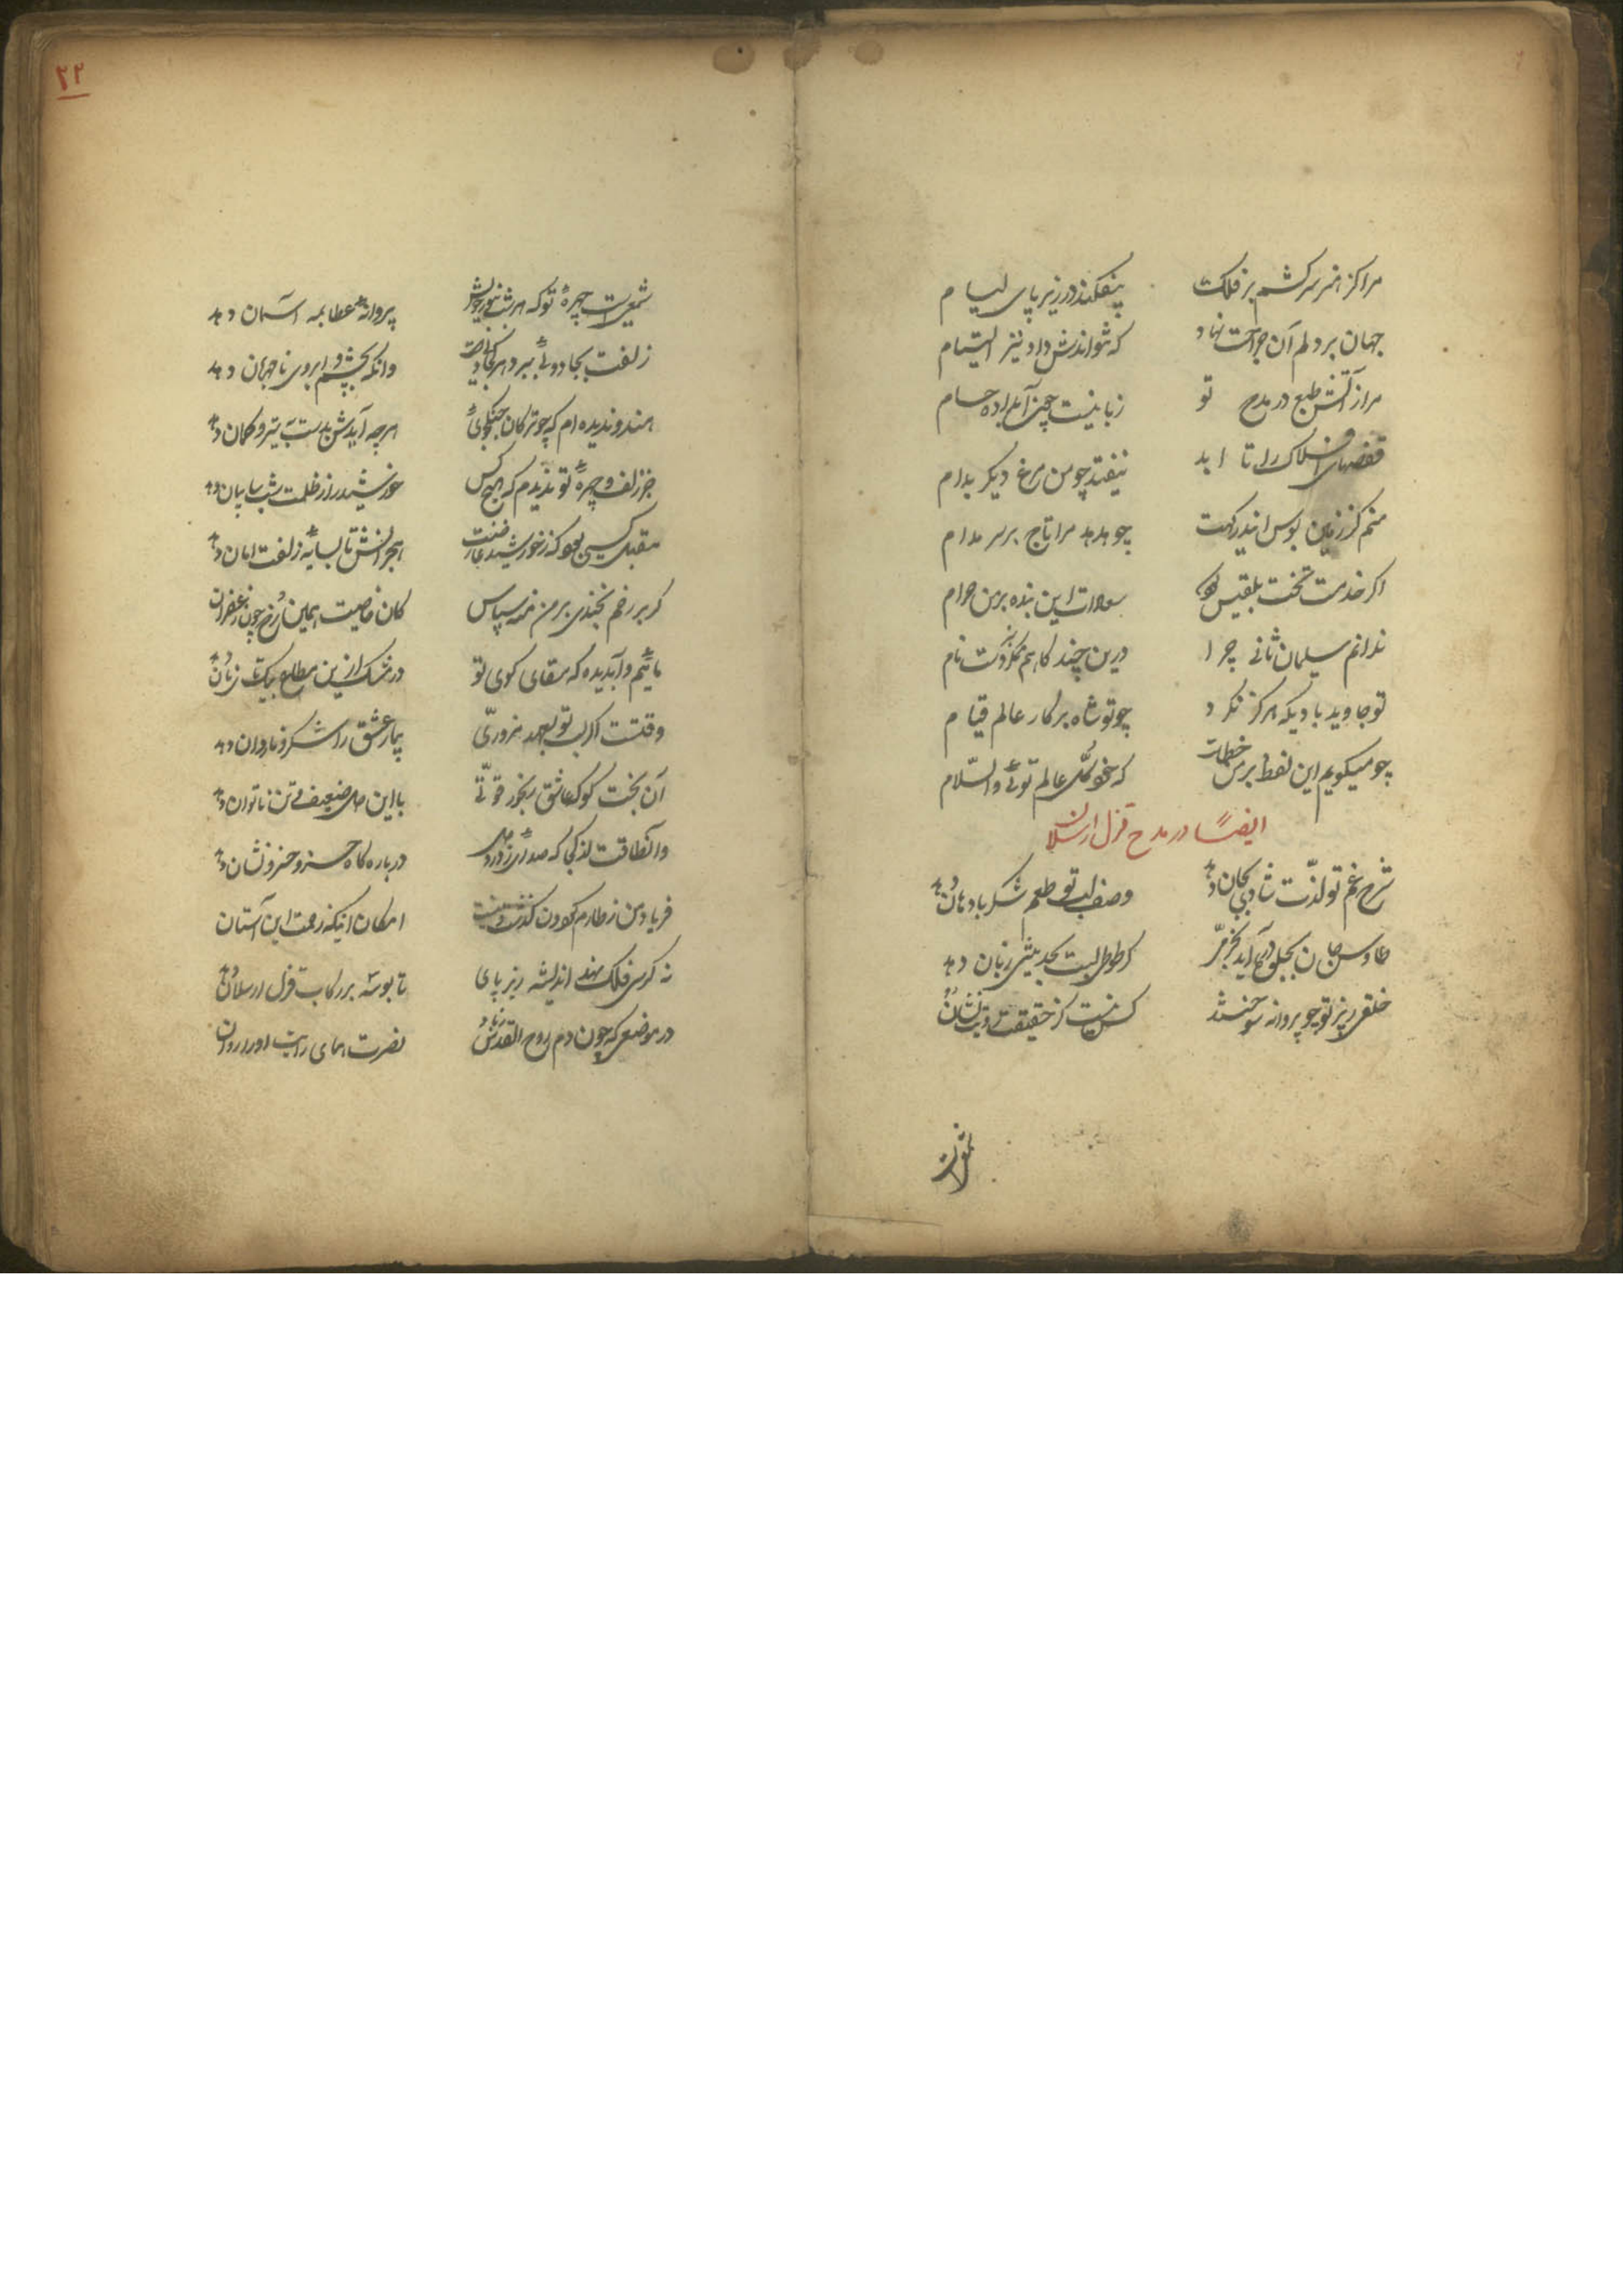 مرا کز هنر سرکشم بر فلک بیفکند در زیر پای لیام
جهان بر دلم آن جراحت نهاد که نتواندش داد نیز التیام
مرا ز آتش طبع در مدح تو زبانیست چون آبداده حسام
قفصهای افلاک را تا ابد نیفتد چو من مرغ دیگر بدام
منم کز زمین بوس این درگهت چو هدهد مرا تاج بر سر مدام
اگر خدمت تخت بلقیس
ندانم سلیمان ثانی چرا درین چند گاهم نگفتست نام
تو جاوید بادی که هرگز نکرد چو تو شاه بر کار عالم قیام
چو میگویم این لفظ بر من خطاست که خود کل عالم توئی والسلام
ایضاً در مدح قزل ارسلان
شرح غم تو لذت شادی بجان دهد وصف لب تو طعم شکر با دهان دهد
طاوس جان بجلوه درآید ز خرمی گر طوطی لبت بحدیثی زبان دهد
خلقی ز پرتو تو چو پروانه سوختند کس نیست کز حقیقت رویت نشان دهد
۲۲
شمعیست چهرهٔ تو که هر شب ز نور خویش پروانهٔ عطا بمه آسمان دهد
زلفت بجادوئی ببرد هر کجا دلیست وانگه بچشم و ابروی نامهربان دهد
هندو ندیده‌ام که چو ترکان جنگجوی هرچه آیدش بدست به تیر و کمان دهد
جز زلف و چهرهٔ تو ندیدم که هیچ کس خورشید را ز ظلمت شب سایبان دهد
مقبل کسی بود که ز خورشید عارضت هجرانش تا بسایهٔ زلفت امان دهد
گر بر رخم بخندی بر من منه سپاس کان خاصیت همین رخ چون زعفران
مائیم و آب دیده که سقای کوی تو
وقتست اگر لب تو بعهد مزوری بیمار عشق را شکر و ناردان دهد
آن بخت کو که عاشق رنجور قوتی با این دل ضعیف و تن ناتوان دهد
وان طاقت از کجا که صدائی ز درد دل در بارگاه خسرو خسرونشان دهد
فریاد من ز طارم گردون گذشت و نیست امکان آنکه زحمت این آستان
نه کرسی فلک نهد اندیشه زیر پای تا بوسه بر رکاب قزل ارسلان دهد
در موضعی که چون دم روح القدس نصرت همای رایت او را روان